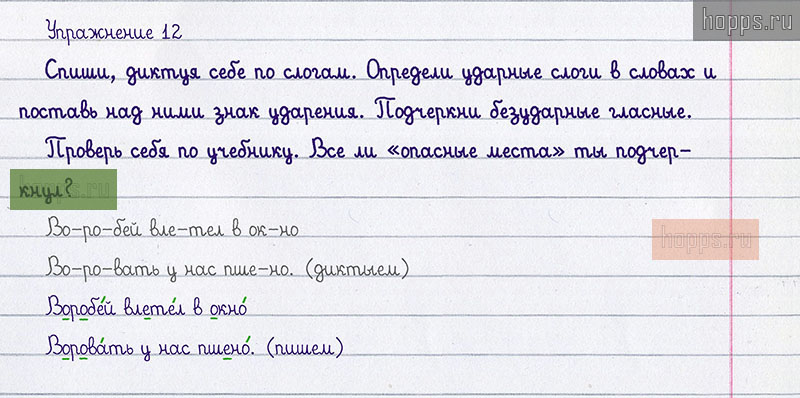 hopps.ru
Упражнение 12
Спиши, диктуя себе по слогам. Определи ударные слоги в словах и
поставь над ними знак ударения. Подчеркни безударные гласные.
Проверь себя по учебнику. Все ли «опасные места» ты подчер-
кнул?
hopps.ru
Во-ро-бей вле-тел в ок-но
hopps.ru
Во-ро-вать у нас пше-но. (диктыем)
Воробе́й влете́л в окно́
Ворова́ть у нас пшено́. (пишем)